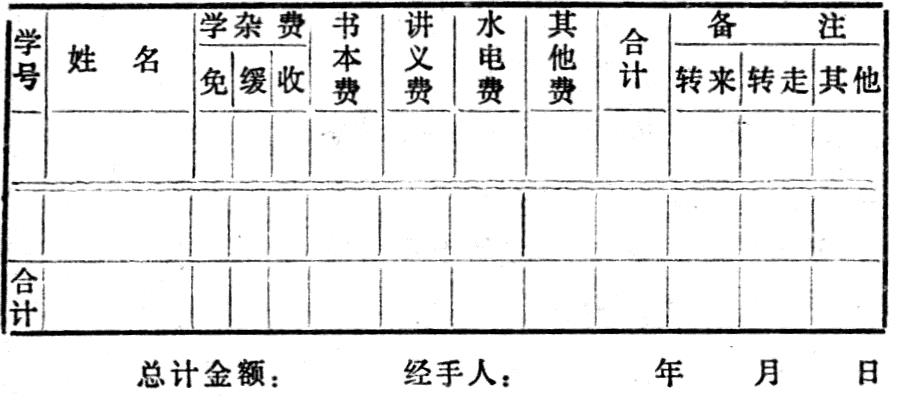 学号 姓名 学杂费 书本费 讲义费 水电费 其他费 合计 备注
免 缓 收 转来 转走 其他
合计
总计金额： 经手人： 年 月 日